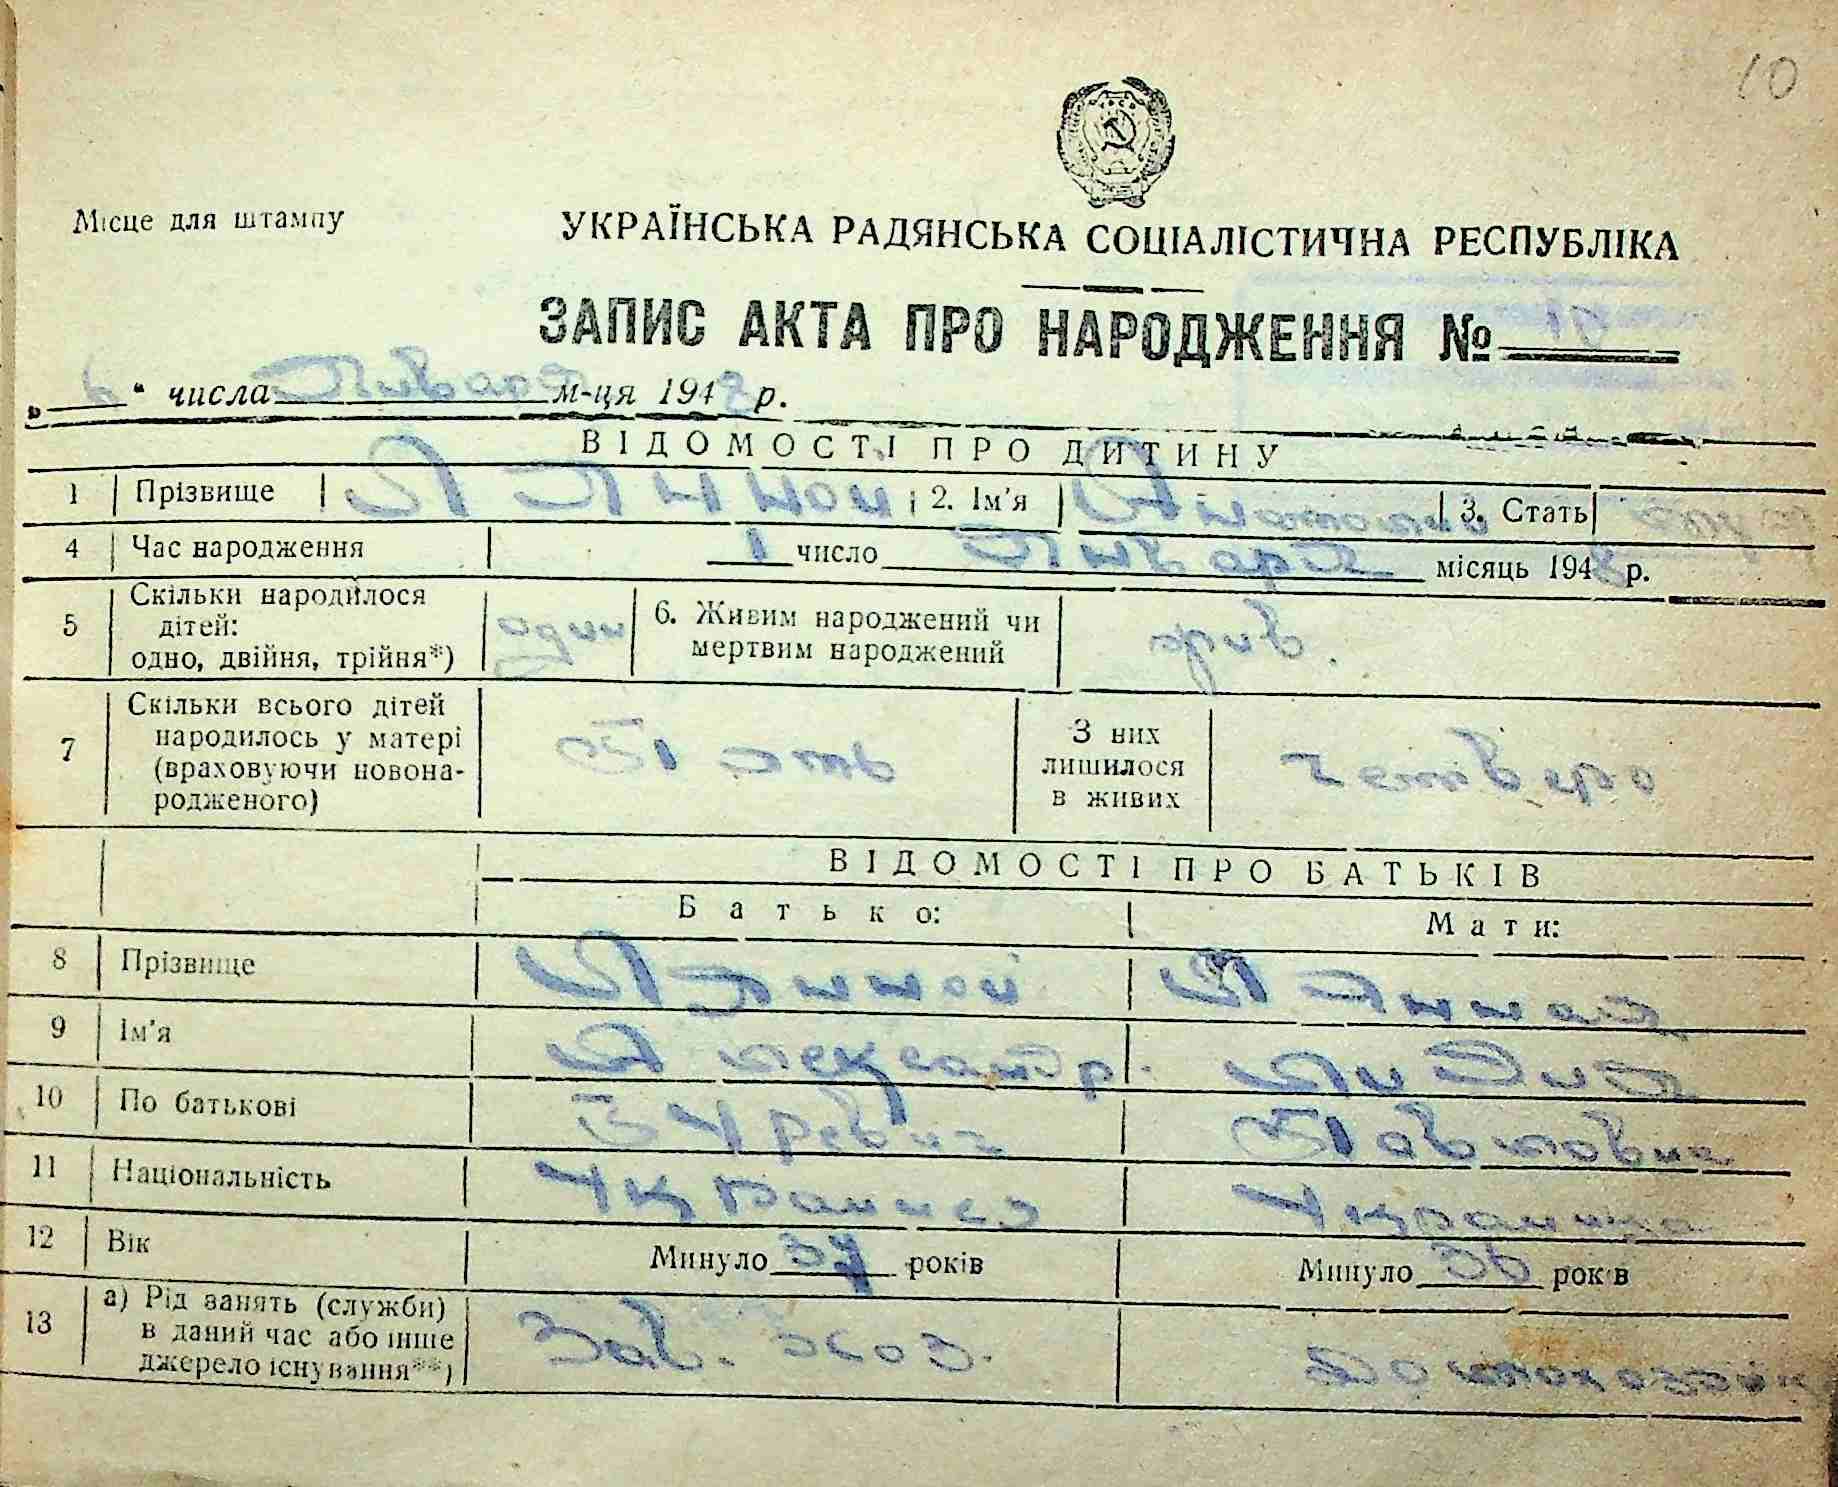 10
Місце для штампу
УКРАЇНСЬКА РАДЯНСЬКА СОЦІАЛІСТИЧНА РЕСПУБЛІКА
ЗАПИС АКТА ПРО НАРОДЖЕННЯ №
„ “ числа Января м-ця 1948 р.
ВІДОМОСТІ ПРО ДИТИНУ
1 Прізвище 2. Ім’я 3. Стать
4 Час народження 1 число Января місяць 1948 р.
5 Скільки народилося дітей: одно, двійня, трійня*) один 6. Живим народжений чи мертвим народжений жив.
7 Скільки всього дітей народилось у матері (враховуючи новонародженого) Пять З них лишилося в живих четверо
ВІДОМОСТІ ПРО БАТЬКІВ
Батько: Мати:
8 Прізвище
9 Ім’я Александр. Лидия
10 По батькові Павловна
11 Національність Украинец Украинка
12 Вік Минуло 37 років Минуло 36 років
13 а) Рід занять (служби) в даний час або інше джерело існування**) Зав. хоз. Домохозяйк